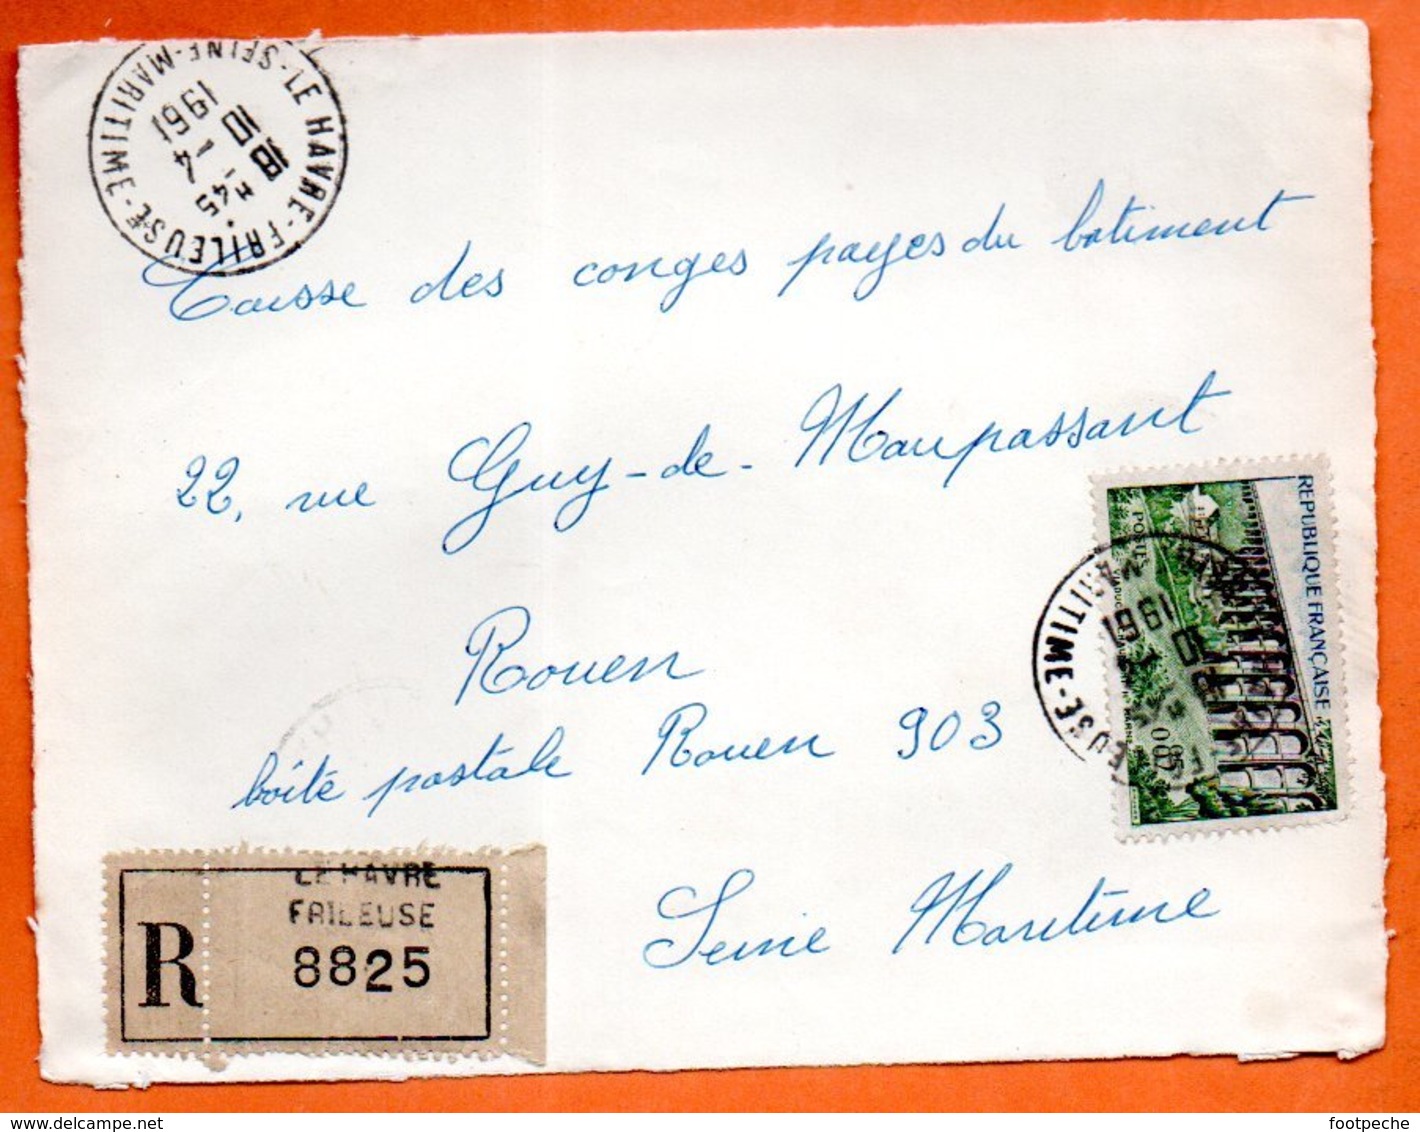 LE HAVRE-FRILEUSE-SEINE-MARITIME-
18 45
10 - 4
1961
Caisse des conges payes du batiment
22, rue Guy-de-Maupassant
Rouen
boîte postale Rouen 903
Seine Maritime
REPUBLIQUE FRANÇAISE
POSTES
0,85
1961
ARITIME-
LEUSE-
R
LE HAVRE
FRILEUSE
8825
footpeche